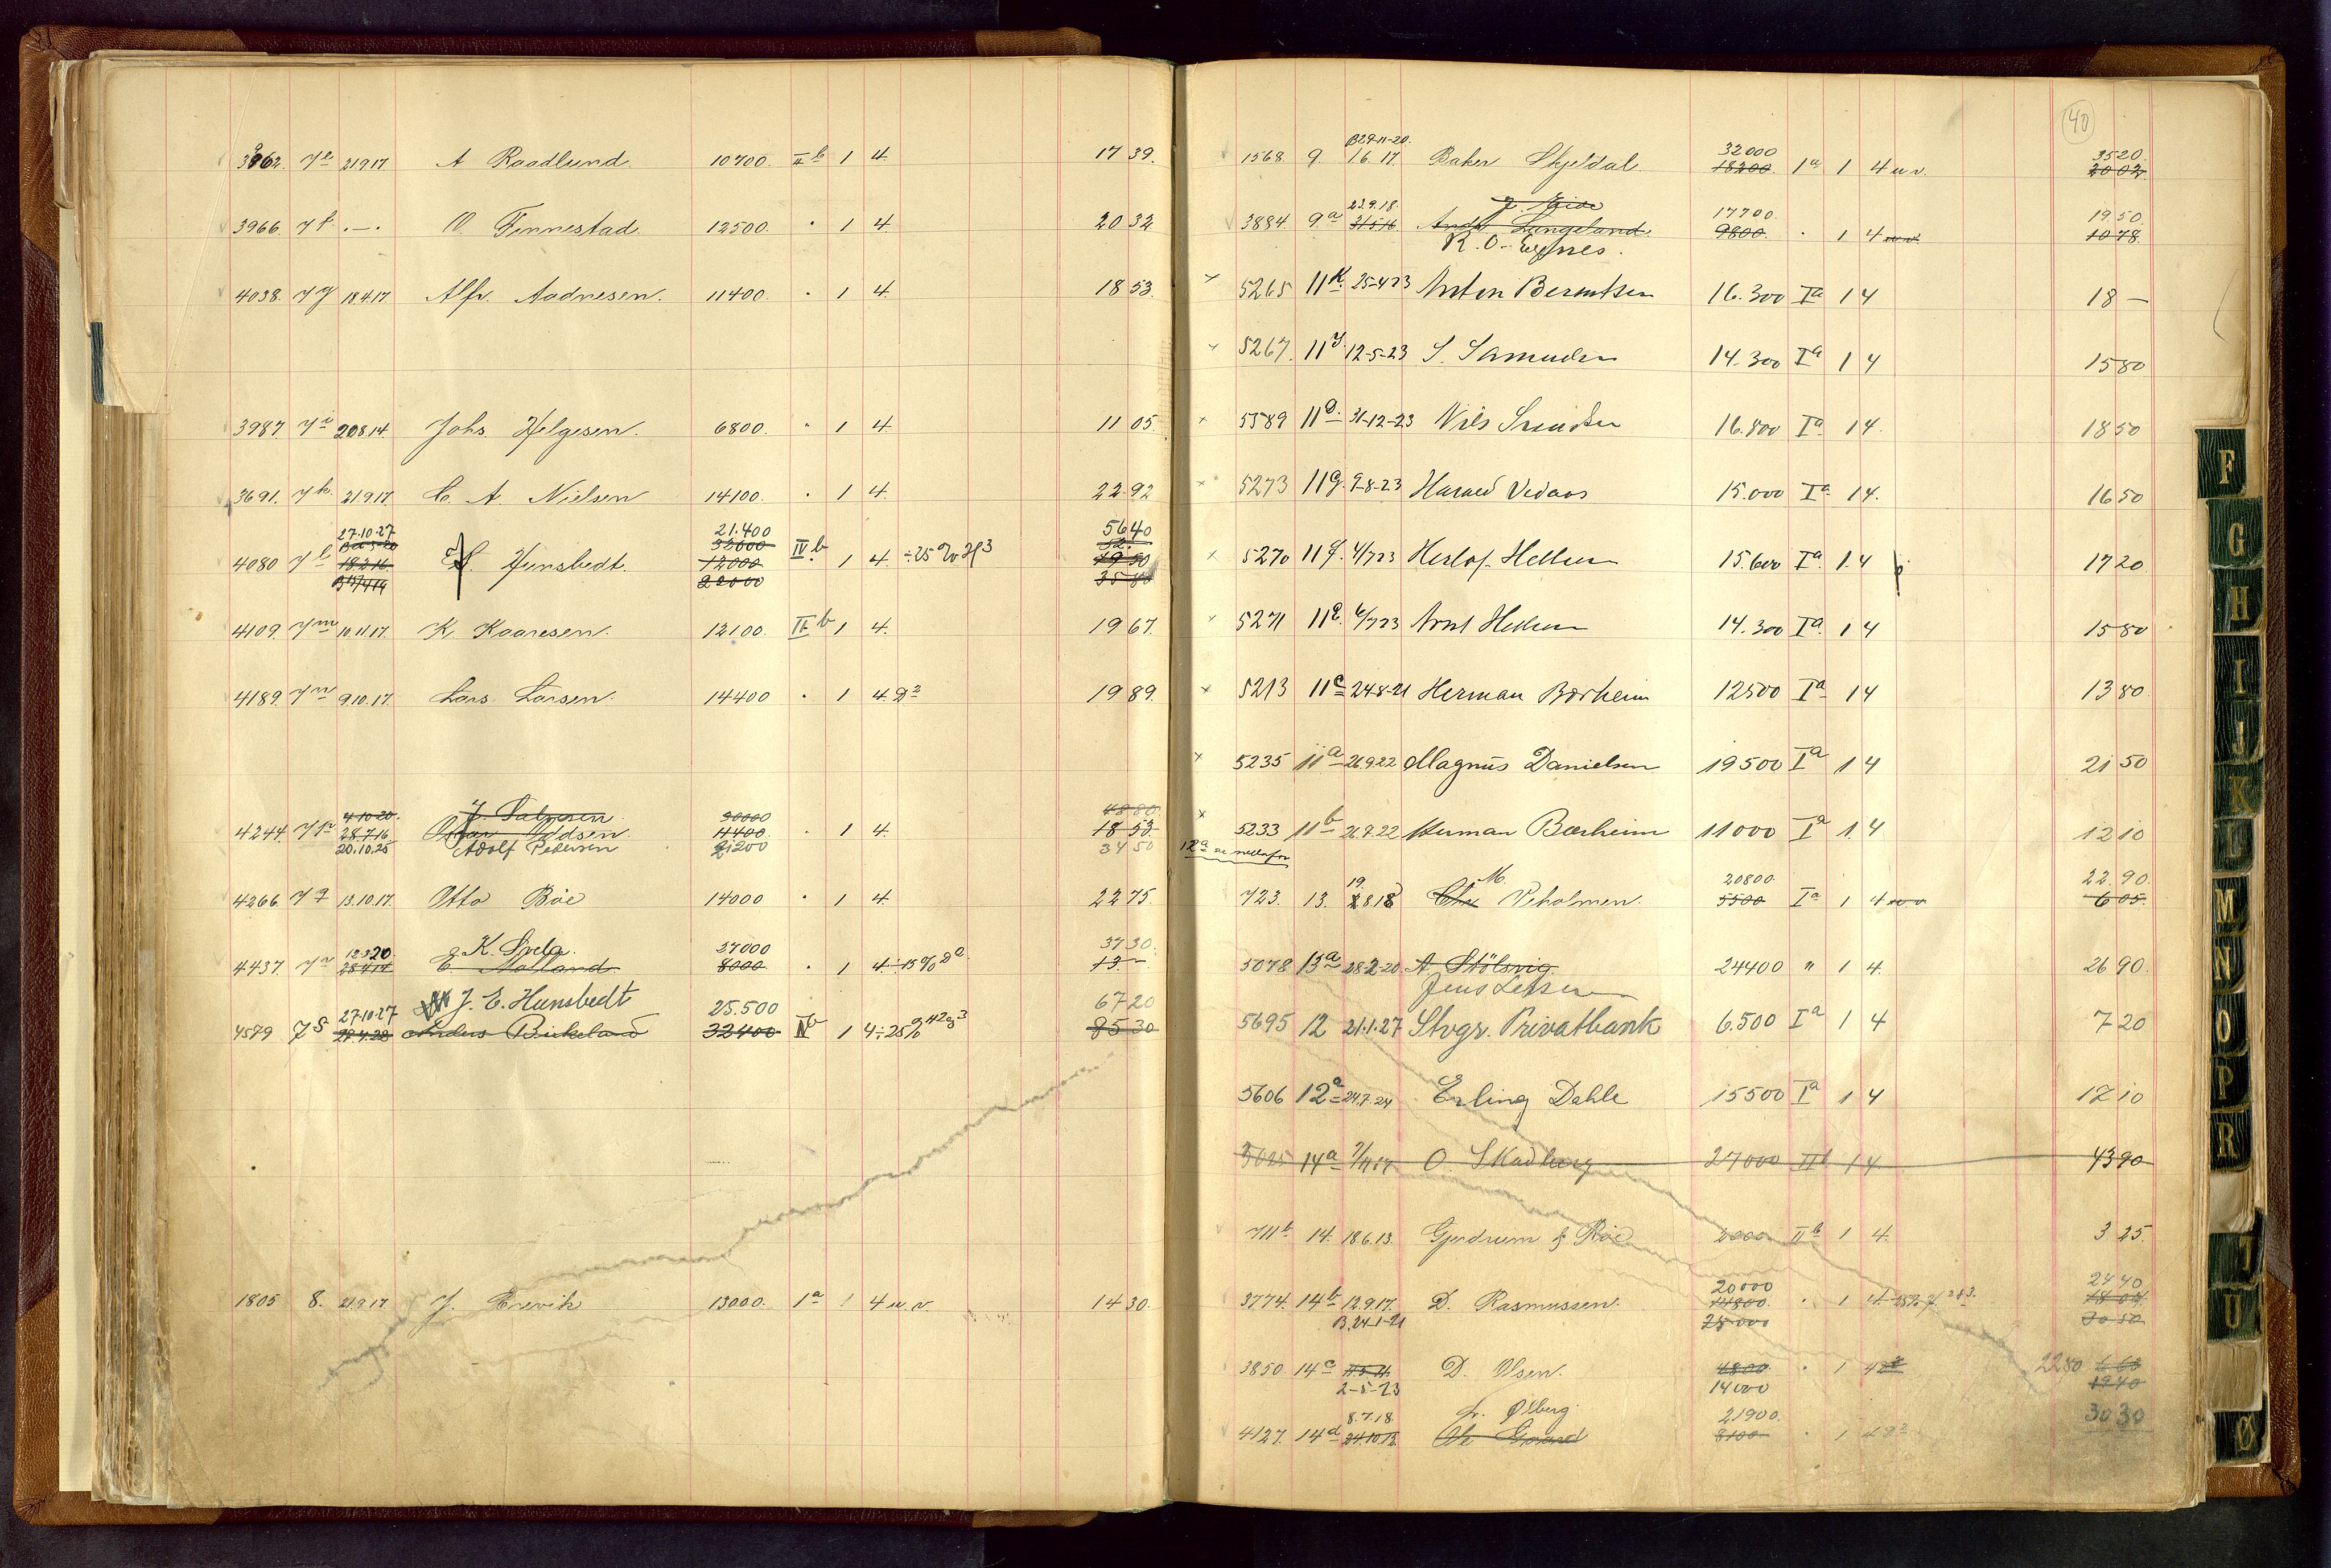 3962. 7e 21.9.17 A Raadlund. 10700. IIb 1 4. 17 39.
3966. 7f .—. O. Finnestad 12500. " 1 4. 20 32
4038. 7g 18.4.17 Alfr. Aadnesen. 11400. " 1 4. 18 53.
3987 7i 20.8.14. Johs. Helgesen. 6800. " 1 4. 11 05.
3691. 7k. 21.9.17. C. A. Nielsen 14100. " 1 4. 22.92
27.10.27 21.400 5640
32600 52.
4080 7l 18.2.16 Hunsbedt. 12000 IVb 1 4. ÷25% H3 19 50
22000 35 80
4109. 7m 10.11.17. K. Kaaresen. 12100. IIb 1 4. 19 67.
4189. 7n 9.10.17. Lars Larsen. 14400 " 1 4. D2 19 89.
4.10.20. J. Salvesen 30000 48 80.
4244. 28.7.16 Oddsen. 11400. " 1 4. 18 53.
20.10.25 Adolf Petersen 21200 34 50
4266. 7q 13.10.17. Otto Bøe 14000 " 1 4. 22 75.
12.3.20 K. Svela. 27000 37 30.
4437 7r 28.4.14 E. Aasland 8000 " 1 4. ÷15% 13 —
27.10.27 J. E. Hunsbedt 25.500 67 20
4579 7s Anders Birkeland 32400 1 4 ÷25% 85 30
1805 8. 21.9.17 J. Erevik 13000. 1a 1 4 u.v. 14 30.
40
B29-11-20. 32000 3520.
1568 9. 1.6.17. Baker Skjeldal. 18200. 1a 1 4 u.v. 20 02.
23.9.18. J. Eide 17700. 19.50.
3884. 9a 31.5.16 Langeland. 9800. " 1 4 u.v. 10 78.
R. O. Egnes.
5265 11k 25-4-23 Anton Berentsen 16.300 Ia 1 4 18 —
5267. 12-5-23 S. Samuelsen 14.300 Ia 1 4 15 80
5589 31-12-23 Nils 16.800 Ia 1 4. 18 50
5273 11g 9-8-23 Harald Vedaas 15.000 Ia 1 4. 16 50
5270 4/7 23 Herlof Hellesen 15.600 Ia 1 4 17 20
5271 11e 6/7 23 Arnt Hellesen 14.300 Ia 1 4 15 80
5213 11c 24-8-21 Herman Børheim 12500 Ia 1 4 13 80
5235 11a 26.9.22 Magnus Danielsen 19500 Ia 1 4 21 50
5233 11b 21.9.22 Herman Børheim 11000 Ia 1 4 12 10
12a se nedenfor
19. M. 20800. 22.90.
723. 13. 2.8.18 Chr. Veholmen. 5500 Ia 1 4 u.v 6 05.
5078 13a 28.2.20. A. Stølsvig. 24400 " 1 4. 26 90.
Jens Larsen
5695 12 21.1.27 Stvgr. Privatbank 6.500 Ia 1 4 7 20
5606 12a 24.7.24 Erling Dahle 15500 Ia 1 4 17 10
3025 14a O. Skadberg 27000 IIb 1 4 43 90
711b 14. 18.6.13. Gjedrum & Røe 2000 IIb 1 4. 3 25.
20000 24 40
3774. 14b 12.9.17. D. Rasmussen. 14800. " 1 4. 18 04
B. 24-1-21 25000 30 50
3850 14c D. Olsen. 4800 " 1 4 22 80
2-5-23 14000 19 40
8.7.18. Ølberg. 21900. 30 30
4127. 14d 24.10.12 8100 " 1 4
F
G
H
I
J
K
M
N
O
P
R
U
Ø